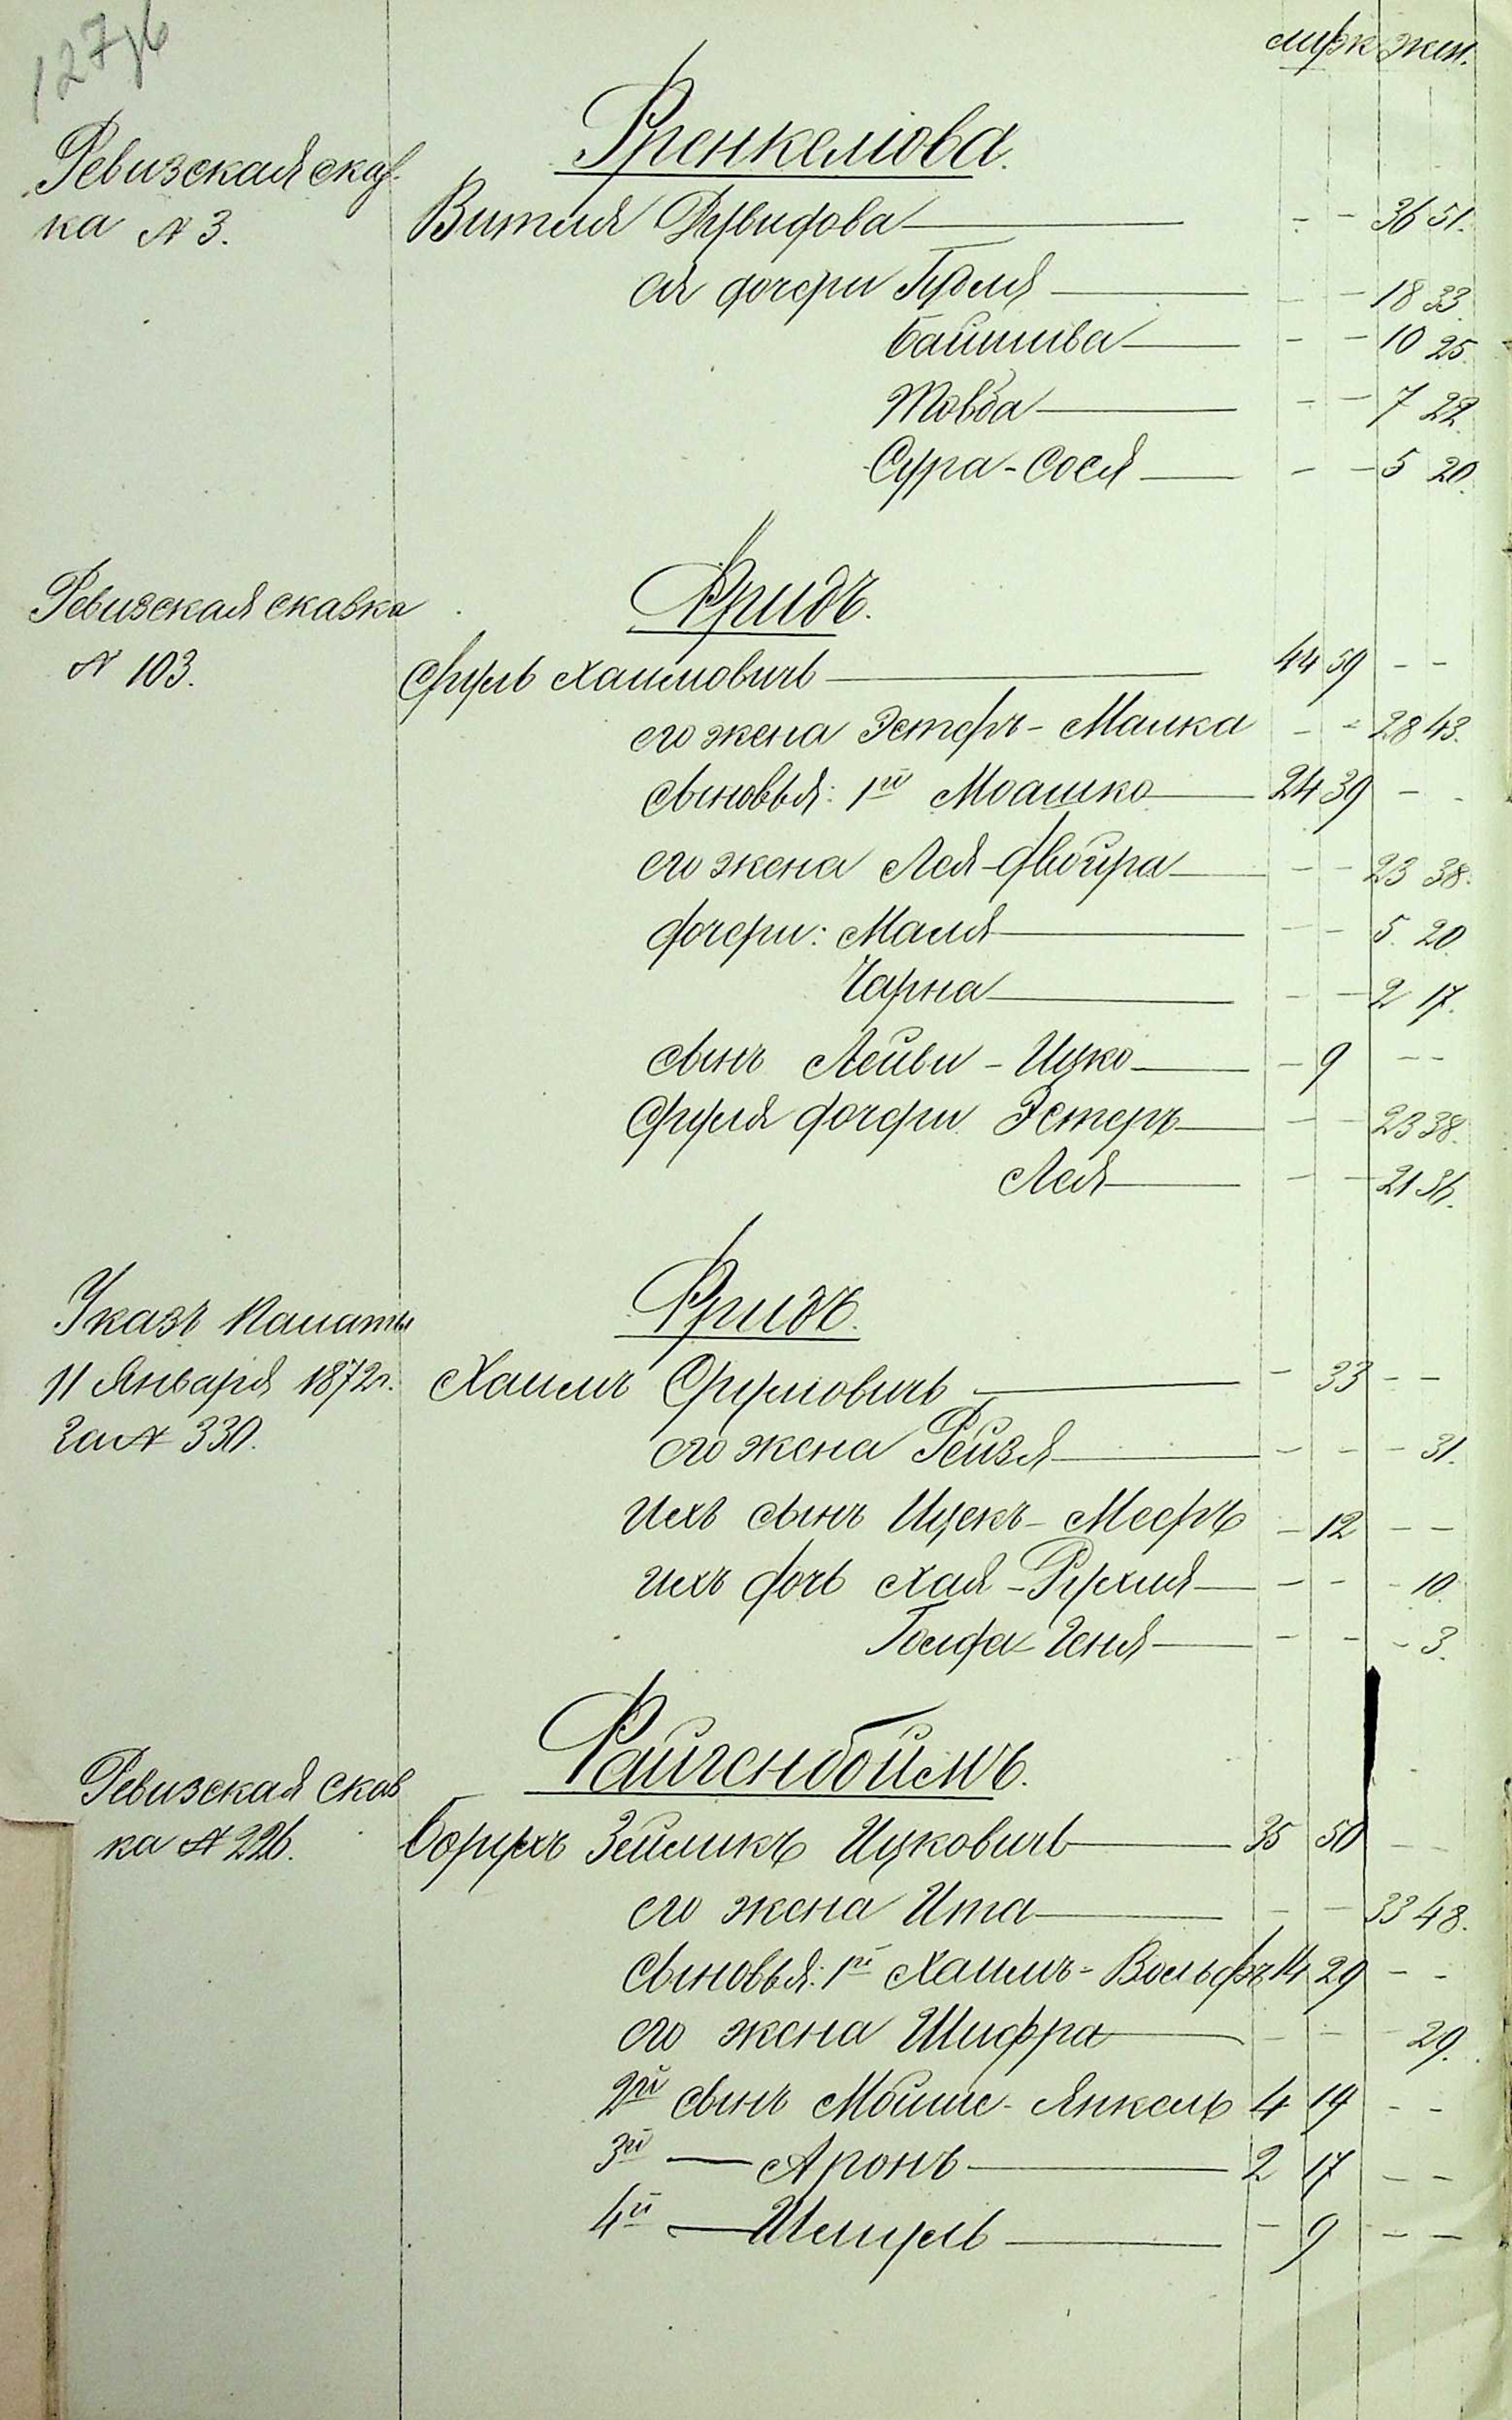 127об
мужс. жен.
Френкелиова.
Ревизская сказ-
ка N 3.
Витля Дувидова — - - 36 51.
ея дочери Гудля — - - 18 33.
Башива — - - 10 25.
Товба — - - 7 22.
Сура-Сося — - - 5 20.
Фридъ.
Ревизская сказка
N 103.
Сруль Хаимовичъ — 44 59 - -
его жена Эстеръ-Малка - - 28 43.
сыновья: 1й Моашко — 24 39 - -
его жена Лея-Двойра — - - 23 38.
дочери: Маля — - - 5. 20.
Чарна — - - 2 17.
сынъ Лейви-Ицко — - 9 - -
Сруля дочери Эстеръ — - - 23 38.
Лея — - - 21 36.
Фридъ.
Указъ Палаты
11 Января 1872 г.
за N 330.
Хаимъ Сруловичъ — - 33 - -
его жена Рейзя — - - - 31.
ихъ сынъ Ицекъ-Мееръ - 12 - -
ихъ дочь Хая-Рухля — - - - 10.
Голда-Геня — - - - 3.
Файгенбоймъ.
Ревизская сказ
ка N 226.
Борухъ Зейликъ Ицковичъ — 35 50 - -
его жена Ита — - - 33 48.
сыновья: 1й Хаимъ-Вольфъ 14 29 - -
его жена Шифра — - - - 29.
2й сынъ Мойше-Янкель 4 19 - -
3й — Аронъ — 2 17 - -
4й — Шмуль — - 9 - -